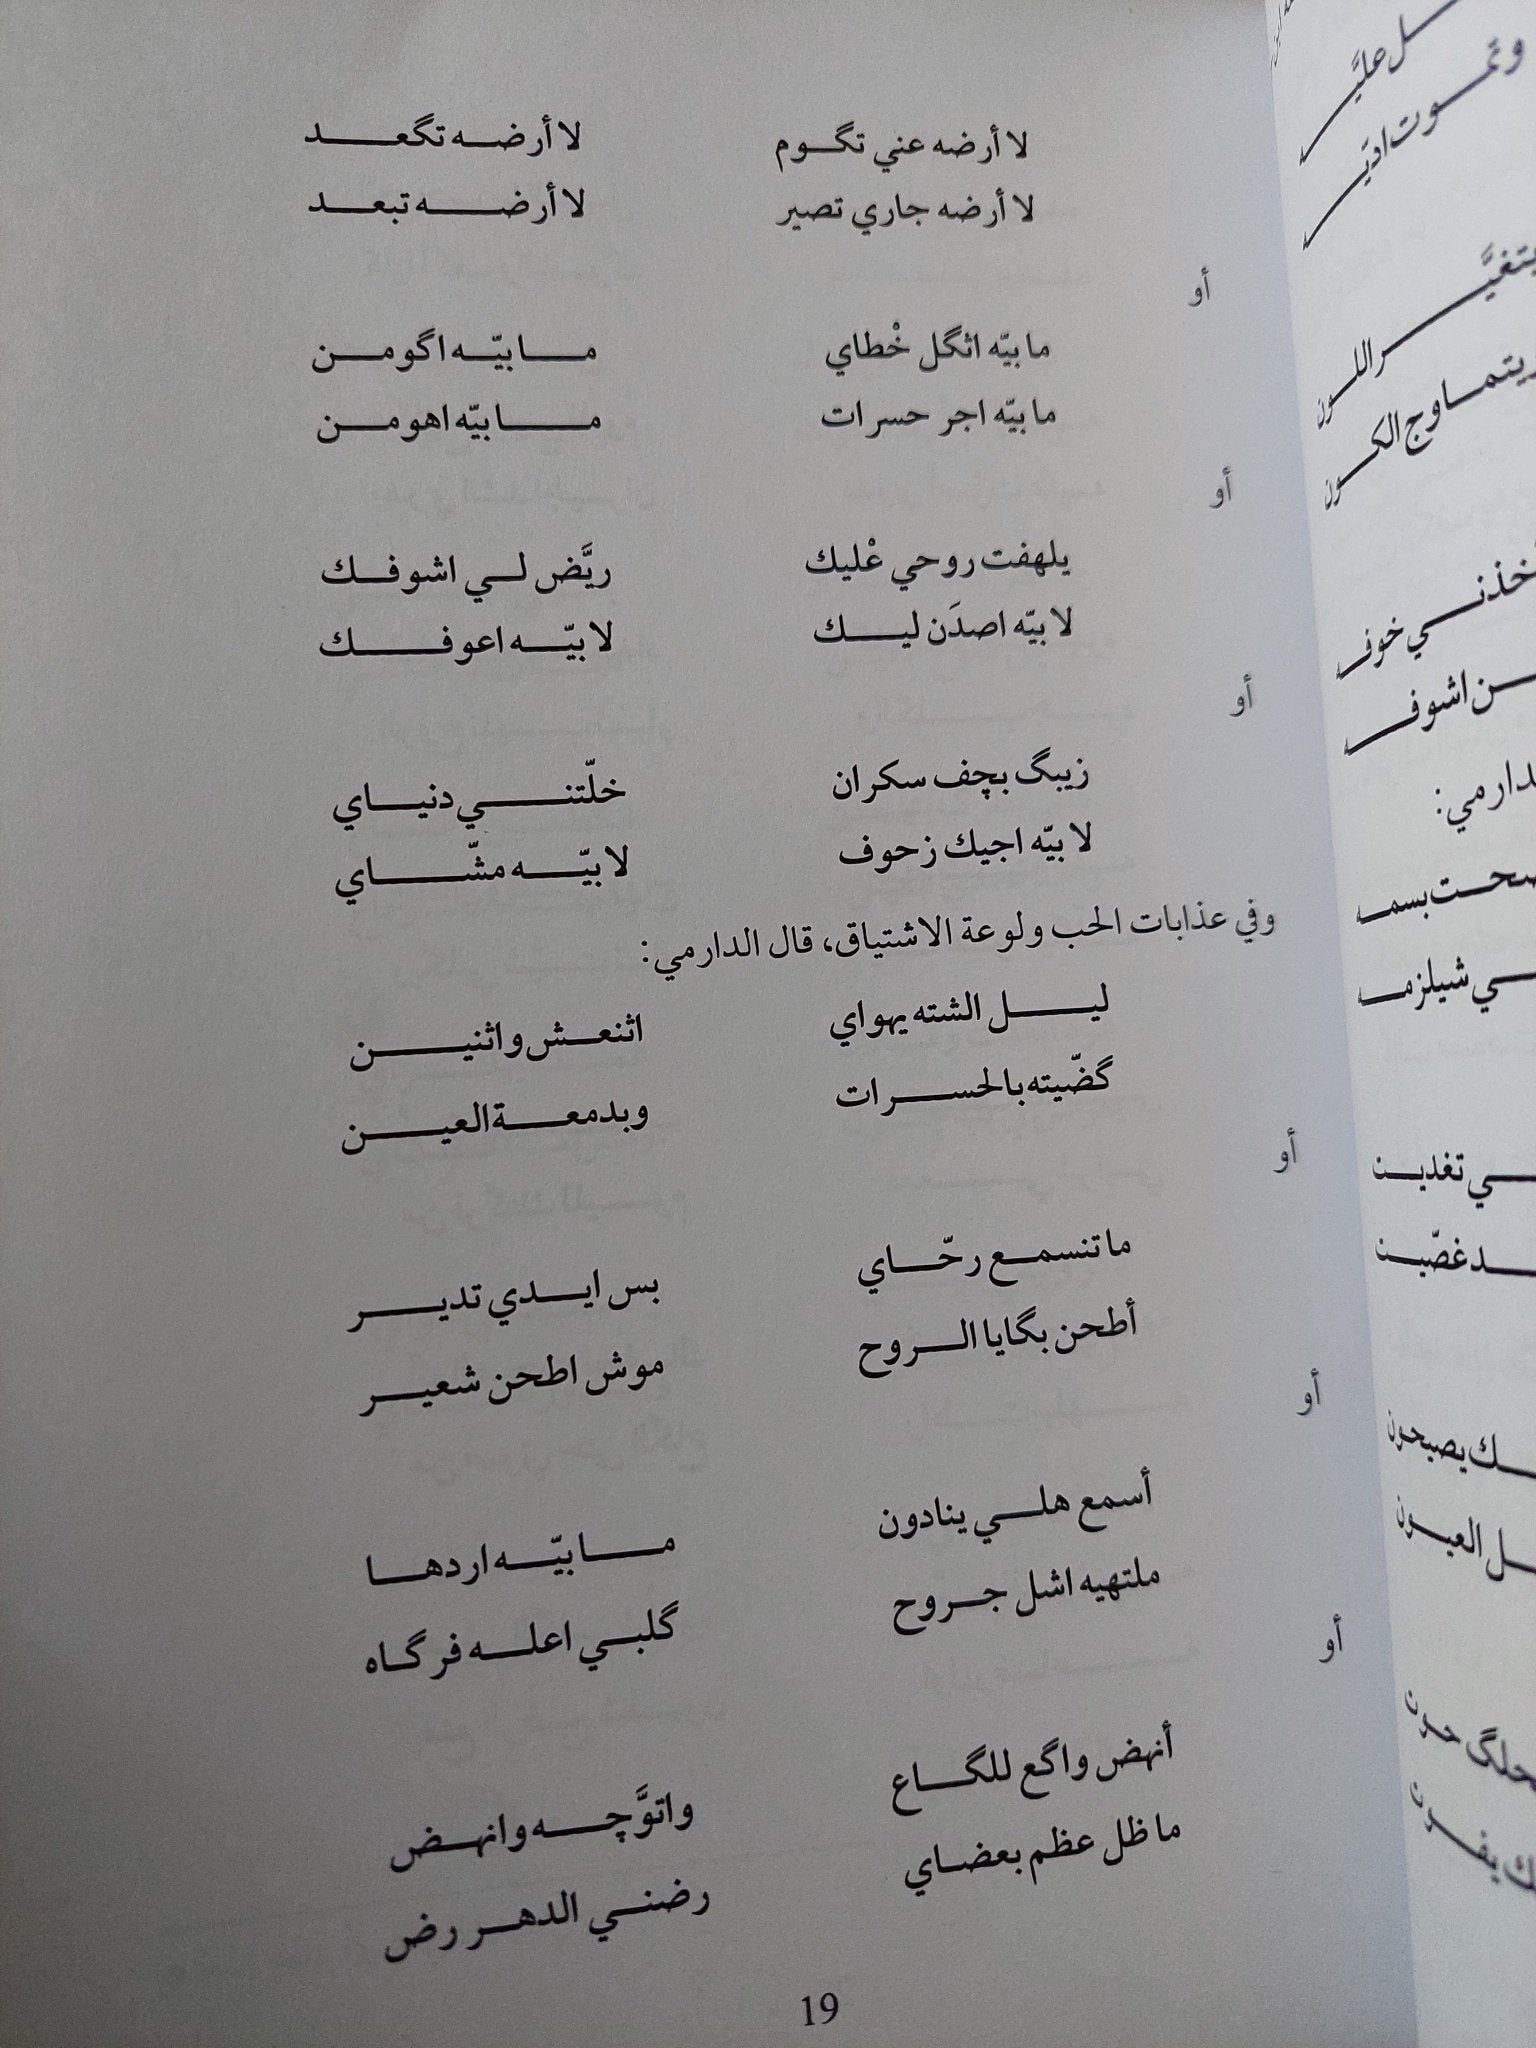 لا أرضه عني تگوم لا أرضه تگعد
لا أرضه جاري تصير لا أرضه تبعد
أو
ما بيّه اثگل خْطاي ما بيّه اگومن
ما بيّه اجر حسرات ما بيّه اهومن
أو
يلهفت روحي عْليك ريَّض لي اشوفك
لا بيّه اصدَن ليك لا بيّه اعوفك
أو
زيبگ بچف سكران خلّتني دنياي
لا بيّه اجيك زحوف لا بيّه مشّاي
وفي عذابات الحب ولوعة الاشتياق، قال الدارمي:
ليل الشته يهواي اثنعش واثنين
گضّيته بالحسرات وبدمعة العين
أو
ما تنسمع رحّاي بس ايدي تدير
أطحن بگايا الروح موش اطحن شعير
أو
أسمع هلي ينادون ما بيّه اردها
ملتهيه اشل جروح گلبي اعله فرگاه
أو
أنهض واگع للگاع واتوَّچه وانهض
ما ظل عظم بعضاي رضني الدهر رض
19
ـل عليَّه
يتغيَّر اللون
ويتماوج الكون
خوف
ـن اشوف
ـدارمي:
ـي شيلزمه
ـي تغدين
ـك يصيحون
ـل العيون